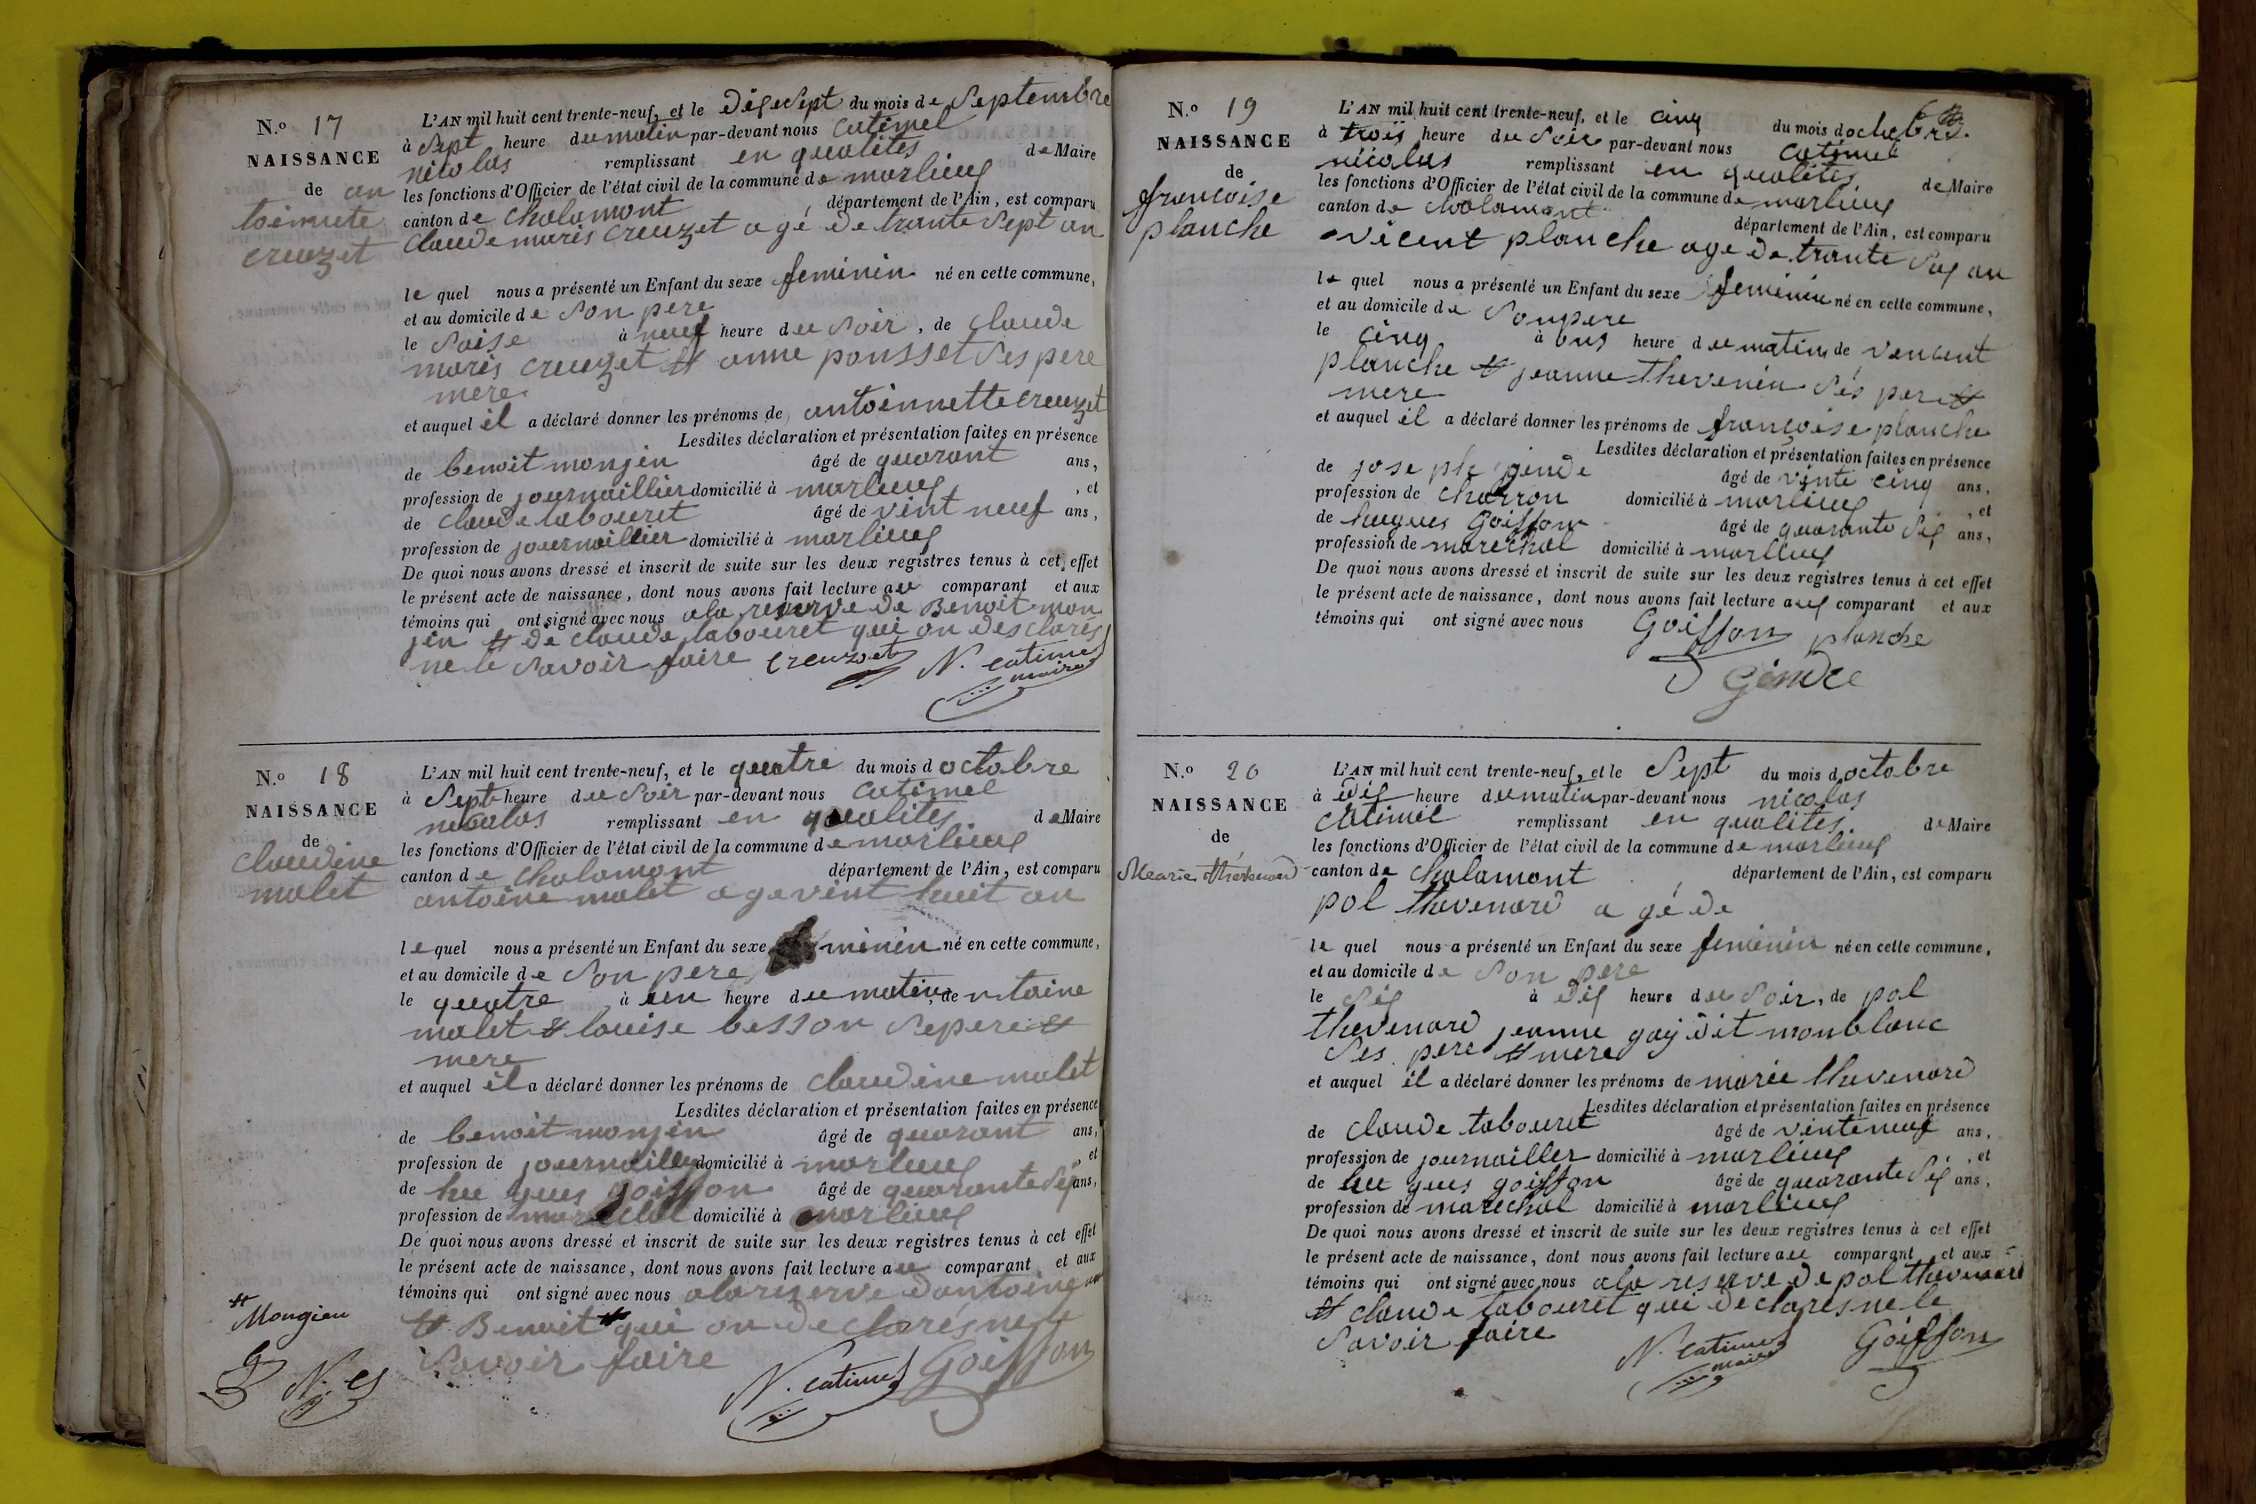 N.º 17
NAISSANCE
de an
toinnete
creuzet
L'AN mil huit cent trente-neuf, et le Dixesept du mois de Septembre
à Sept heure du matin par-devant nous Catimel
nicolas remplissant en qualites de Maire
les fonctions d'Officier de l'état civil de la commune de marlieux
canton de Chalamont département de l'Ain, est comparu
Claude maris Creuzet agé de trante Sept an
le quel nous a présenté un Enfant du sexe feminin né en cette commune,
et au domicile de Son pere
le Saise à neuf heure du Soir, de Claude
maris Creuzet et anne pousset Ses pere
mere
et auquel il a déclaré donner les prénoms de antoinnette creuzet
Lesdites déclaration et présentation faites en présence
de benoit monjin âgé de quarant ans,
profession de journaillier domicilié à marlieux, et
de Claude labouret âgé de vint neuf ans,
profession de journaillier domicilié à marlieux
De quoi nous avons dressé et inscrit de suite sur les deux registres tenus à cet effet
le présent acte de naissance, dont nous avons fait lecture au comparant et aux
témoins qui ont signé avec nous ala reserve de Benoit mon
jin et de claude labouret qui on desclarés
ne le Savoir faire Creuzet N. catimel
maire
N.º 18
NAISSANCE
de
Claudine
malet
L'AN mil huit cent trente-neuf, et le quatre du mois d octobre
à Sept heure du Soir par-devant nous Catimel
nicolas remplissant en qualites de Maire
les fonctions d'Officier de l'état civil de la commune de marlieux
canton de Chalamont département de l'Ain, est comparu
antoine malet age vint huit an
le quel nous a présenté un Enfant du sexe minin né en cette commune,
et au domicile de Son pere
le quatre à un heure du matin, de ntoine
malet et louise besson Sepere et
mere
et auquel il a déclaré donner les prénoms de claudine malet
Lesdites déclaration et présentation faites en présence
de benoit monjin âgé de quarant ans,
profession de journailler domicilié à marlieux, et
de hugues goiffon âgé de quarante Six ans,
profession de marechal domicilié à marlieux
De quoi nous avons dressé et inscrit de suite sur les deux registres tenus à cet effet
le présent acte de naissance, dont nous avons fait lecture au comparant et aux
témoins qui ont signé avec nous ala reserve dantoine
et Benoit et qui on declarés ne le
Savoir faire N. catimel Goiffon
et
Mongien
N. C
N.º 19
NAISSANCE
de
francoise
planche
L'AN mil huit cent trente-neuf, et le cinq du mois doctobre.
à trois heure du Soir par-devant nous Catimel
nicolas remplissant en qualites de Maire
les fonctions d'Officier de l'état civil de la commune de marlieux
canton de Chalamont département de l'Ain, est comparu
vicent planche age de trante Six an
le quel nous a présenté un Enfant du sexe feminin né en cette commune,
et au domicile de Son pere
le cinq à heure du matin de vencent
planche et jeanne thevenin Sés pere et
mere
et auquel il a déclaré donner les prénoms de françoise planche
Lesdites déclaration et présentation faites en présence
de joseph gende âgé de vinte cinq ans,
profession de charron domicilié à marlieux, et
de hugues Goiffon âgé de quarante Six ans,
profession de marechal domicilié à marlieux
De quoi nous avons dressé et inscrit de suite sur les deux registres tenus à cet effet
le présent acte de naissance, dont nous avons fait lecture aux comparant et aux
témoins qui ont signé avec nous Goiffon planche
Gendre
N.º 20
NAISSANCE
de
Mearie thevenard
L'AN mil huit cent trente-neuf, et le Sept du mois doctobre
à dix heure du matin par-devant nous nicolas
Catimel remplissant en qualites de Maire
les fonctions d'Officier de l'état civil de la commune de marlieux
canton de Chalamont département de l'Ain, est comparu
pol thevenard agé de
le quel nous a présenté un Enfant du sexe feminin né en cette commune,
et au domicile de Son pere
le Six à Dix heure du Soir, de pol
thevenard jeanne gay dit monblanc
Ses pere et mere
et auquel il a déclaré donner les prénoms de mariee thevenard
Lesdites déclaration et présentation faites en présence
de claude labouret âgé de vinteneuf ans,
profession de journailler domicilié à marlieux, et
de hugues goiffon âgé de quarante Six ans,
profession de marechal domicilié à marlieux
De quoi nous avons dressé et inscrit de suite sur les deux registres tenus à cet effet
le présent acte de naissance, dont nous avons fait lecture au comparant et aux
témoins qui ont signé avec nous ala reserve de pol thevenard
et claude labouret qui declarés ne le
Savoir faire N. catimel Goiffon
maire